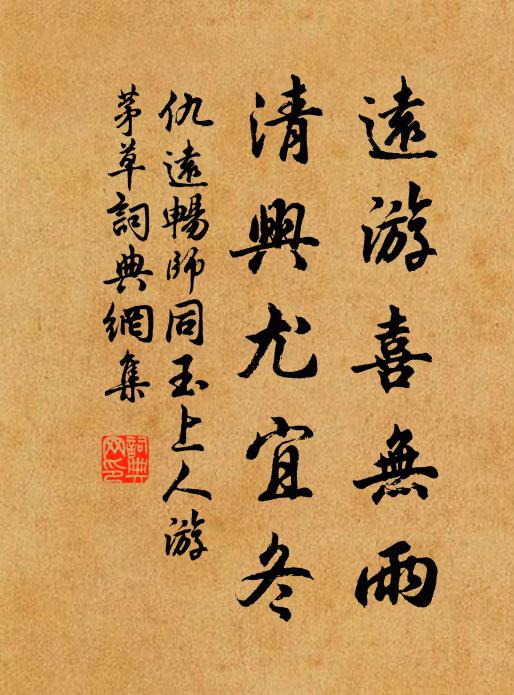 遠游喜無雨
清興尤宜冬
仇遠暢師同玉上人游
茅草詞典網集
詞典
网印